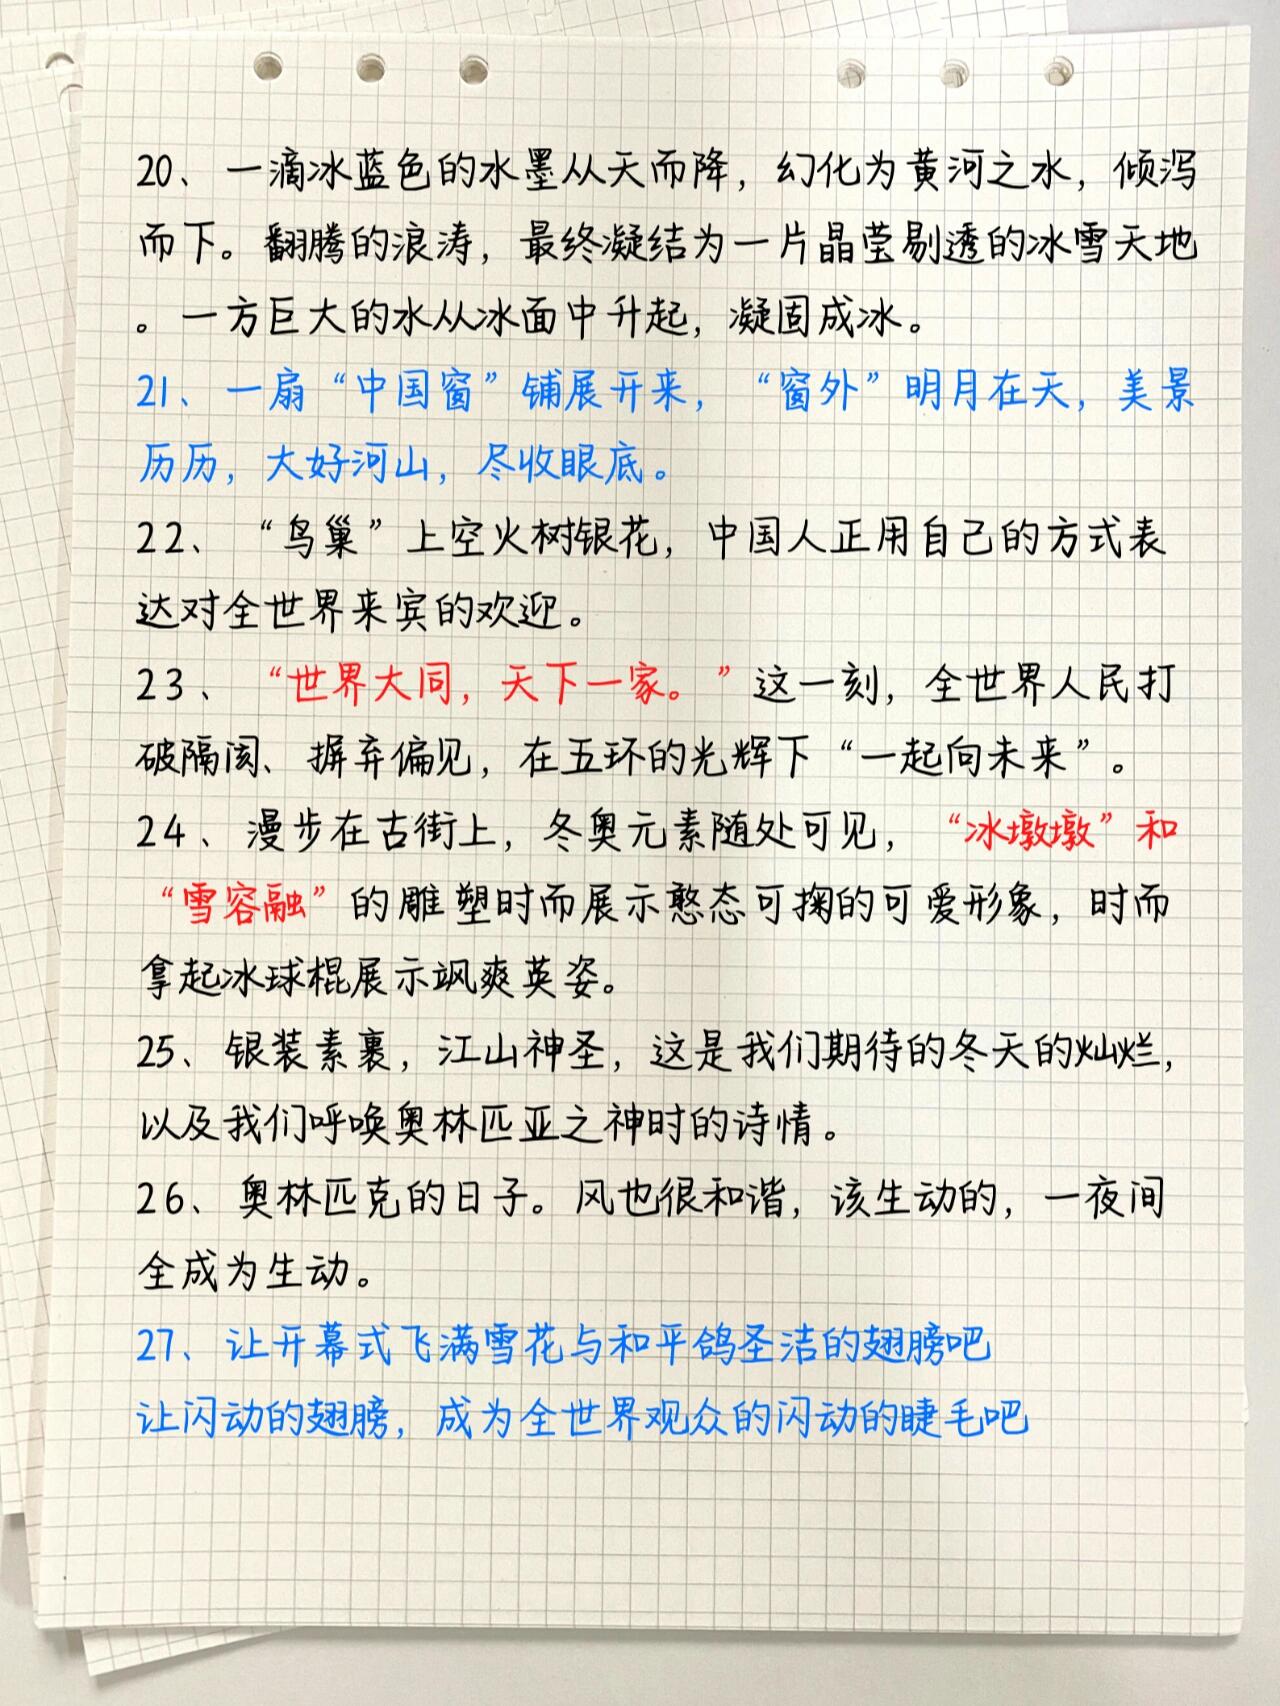 20、一滴冰蓝色的水墨从天而降，幻化为黄河之水，倾泻
而下。翻腾的浪涛，最终凝结为一片晶莹剔透的冰雪天地
。一方巨大的水从冰面中升起，凝固成冰。
21、一扇“中国窗”铺展开来，“窗外”明月在天，美景
历历，大好河山，尽收眼底。
22、“鸟巢”上空火树银花，中国人正用自己的方式表
达对全世界来宾的欢迎。
23、“世界大同，天下一家。”这一刻，全世界人民打
破隔阂、摒弃偏见，在五环的光辉下“一起向未来”。
24、漫步在古街上，冬奥元素随处可见，“冰墩墩”和
“雪容融”的雕塑时而展示憨态可掬的可爱形象，时而
拿起冰球棍展示飒爽英姿。
25、银装素裹，江山神圣，这是我们期待的冬天的灿烂，
以及我们呼唤奥林匹亚之神时的诗情。
26、奥林匹克的日子。风也很和谐，该生动的，一夜间
全成为生动。
27、让开幕式飞满雪花与和平鸽圣洁的翅膀吧
让闪动的翅膀，成为全世界观众的闪动的睫毛吧